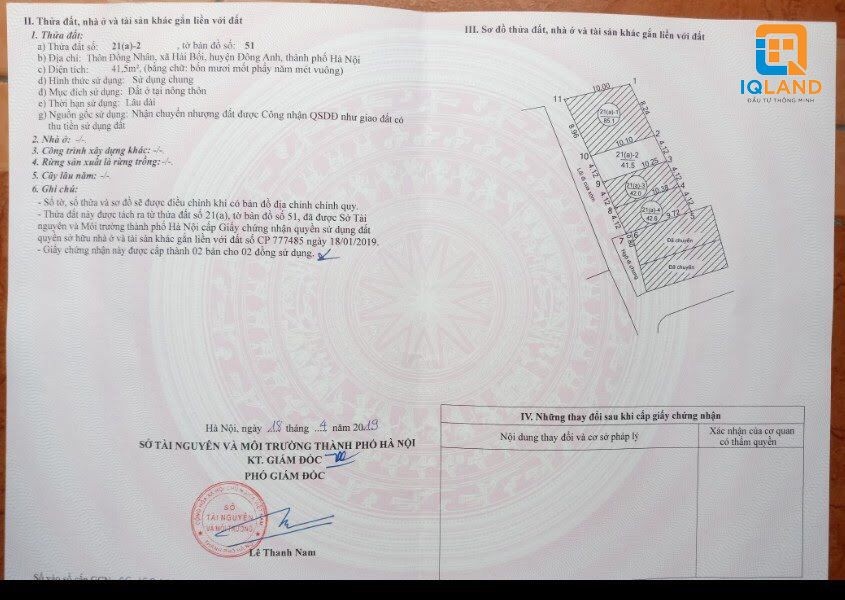 II. Thửa đất, nhà ở và tài sản khác gắn liền với đất
1. Thửa đất:
a) Thửa đất số: 21(a)-2 , tờ bản đồ số: 51
b) Địa chỉ: Thôn Đồng Nhân, xã Hải Bối, huyện Đông Anh, thành phố Hà Nội
c) Diện tích: 41,5m², (bằng chữ: bốn mươi mốt phẩy năm mét vuông)
d) Hình thức sử dụng: Sử dụng chung
đ) Mục đích sử dụng: Đất ở tại nông thôn
e) Thời hạn sử dụng: Lâu dài
g) Nguồn gốc sử dụng: Nhận chuyển nhượng đất được Công nhận QSDĐ như giao đất có
thu tiền sử dụng đất
2. Nhà ở: -/-
3. Công trình xây dựng khác: -/-
4. Rừng sản xuất là rừng trồng: -/-
5. Cây lâu năm: -/-
6. Ghi chú:
- Số tờ, số thửa và sơ đồ sẽ được điều chỉnh khi có bản đồ địa chính chính quy.
- Thửa đất này được tách ra từ thửa đất số 21(a), tờ bản đồ số 51, đã được Sở Tài
nguyên và Môi trường thành phố Hà Nội cấp Giấy chứng nhận quyền sử dụng đất
quyền sở hữu nhà ở và tài sản khác gắn liền với đất số CP 777485 ngày 18/01/2019.
- Giấy chứng nhận này được cấp thành 02 bản cho 02 đồng sử dụng.
Hà Nội, ngày 18 tháng 4 năm 2019
SỞ TÀI NGUYÊN VÀ MÔI TRƯỜNG THÀNH PHỐ HÀ NỘI
KT. GIÁM ĐỐC
PHÓ GIÁM ĐỐC
SỞ
TÀI NGUYÊN
VÀ MÔI TRƯỜNG
Lê Thanh Nam
III. Sơ đồ thửa đất, nhà ở và tài sản khác gắn liền với đất
IQLAND
ĐẦU TƯ THÔNG MINH
10.00
1
11
21(a)-1
85.1
8.24
8.96
2
10.10
10
21(a)-2
41.5
4.12
3
10.25
4.12
9
21(a)-3
42.0
4.12
4
10.38
4.12
8
21(a)-4
42.6
4.12
5
9.72
6
7
Lối đi của xóm
Ngõ đi chung
Đã chuyển
Đã chuyển
IV. Những thay đổi sau khi cấp giấy chứng nhận
Nội dung thay đổi và cơ sở pháp lý
Xác nhận của cơ quan
có thẩm quyền